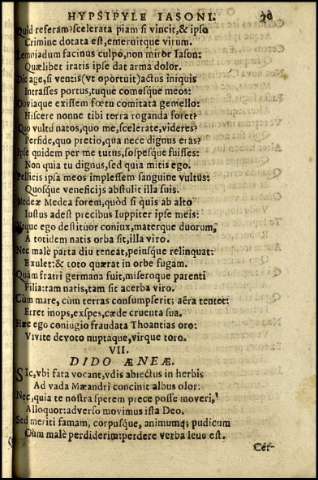 HYPSIPYLE IASONI.
Quid referam scelerata piam si vincit, & ipso
Crimine dotata est, emeruitque virum.
Lemniadum facinus culpo, non miror Iason:
Quælibet iratis ipse dat arma dolor.
Dic age, si ventis (vt oportuit) actus iniquis
Intrasses portus, tuque comesque meos:
Obviaque exissem fœtu comitata gemello:
Hiscere nonne tibi terra roganda foret?
Quo vultu natos, quo me, scelerate, videres?
Perfide, quo pretio, qua nece dignus eras?
Ipse quidem per me tutus, sospesque fuisses:
Non quia tu dignus, sed quia mitis ego.
Pellicis ipsa meos implessem sanguine vultus:
Quosque veneficijs abstulit illa suis.
Medeæ Medea forem, quòd si quis ab alto
Iustus adest precibus Iuppiter ipse meis:
Vtque ego destituor coniux, materque duorum,
A totidem natis orba sit, illa viro.
Nec malè parta diu teneat, peiusque relinquat:
Exulet: & toto quærat in orbe fugam.
Quàm fratri germana fuit, miseroque parenti
Filia: tam natis, tam sit acerba viro.
Cùm mare, cùm terras consumpserit: aëra tentet:
Erret inops, exspes, cæde cruenta sua.
Hæc ego coniugio fraudata Thoantias oro:
Vivite devoto nuptaque, virque toro.
VII.
DIDO ÆNEÆ.
Sic, vbi fata vocant, vdis abiectus in herbis
Ad vada Mæandri concinit albus olor:
Nec, quia te nostra sperem prece posse moveri,
Alloquor: adverso movimus ista Deo.
Sed meriti famam, corpusque, animumque pudicum
Cùm malè perdiderim: perdere verba leve est.